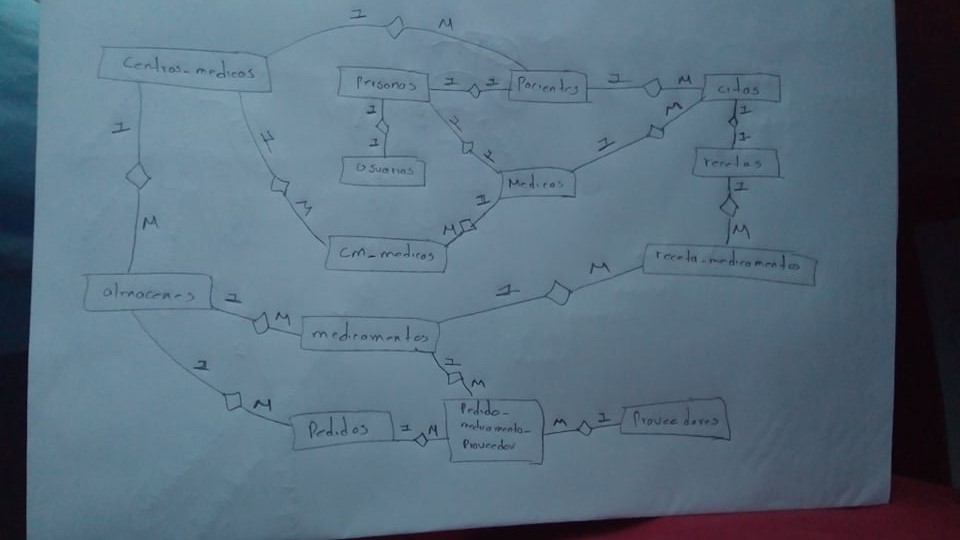 1 M
Centros_medicos
Personas 1 1 Pacientes 1 M citas
1 1
1 1
Usuarios
recetas
1 1
Medicos
1 M
1 M
1 M
M 1
cm_medicos
1 M
receta_medicamentos
almacenes 1 M medicamentos 1 M
1 M
1 M
Pedidos 1 M
Pedido_
medicamento_
Proveedor
M 1 Proveedores